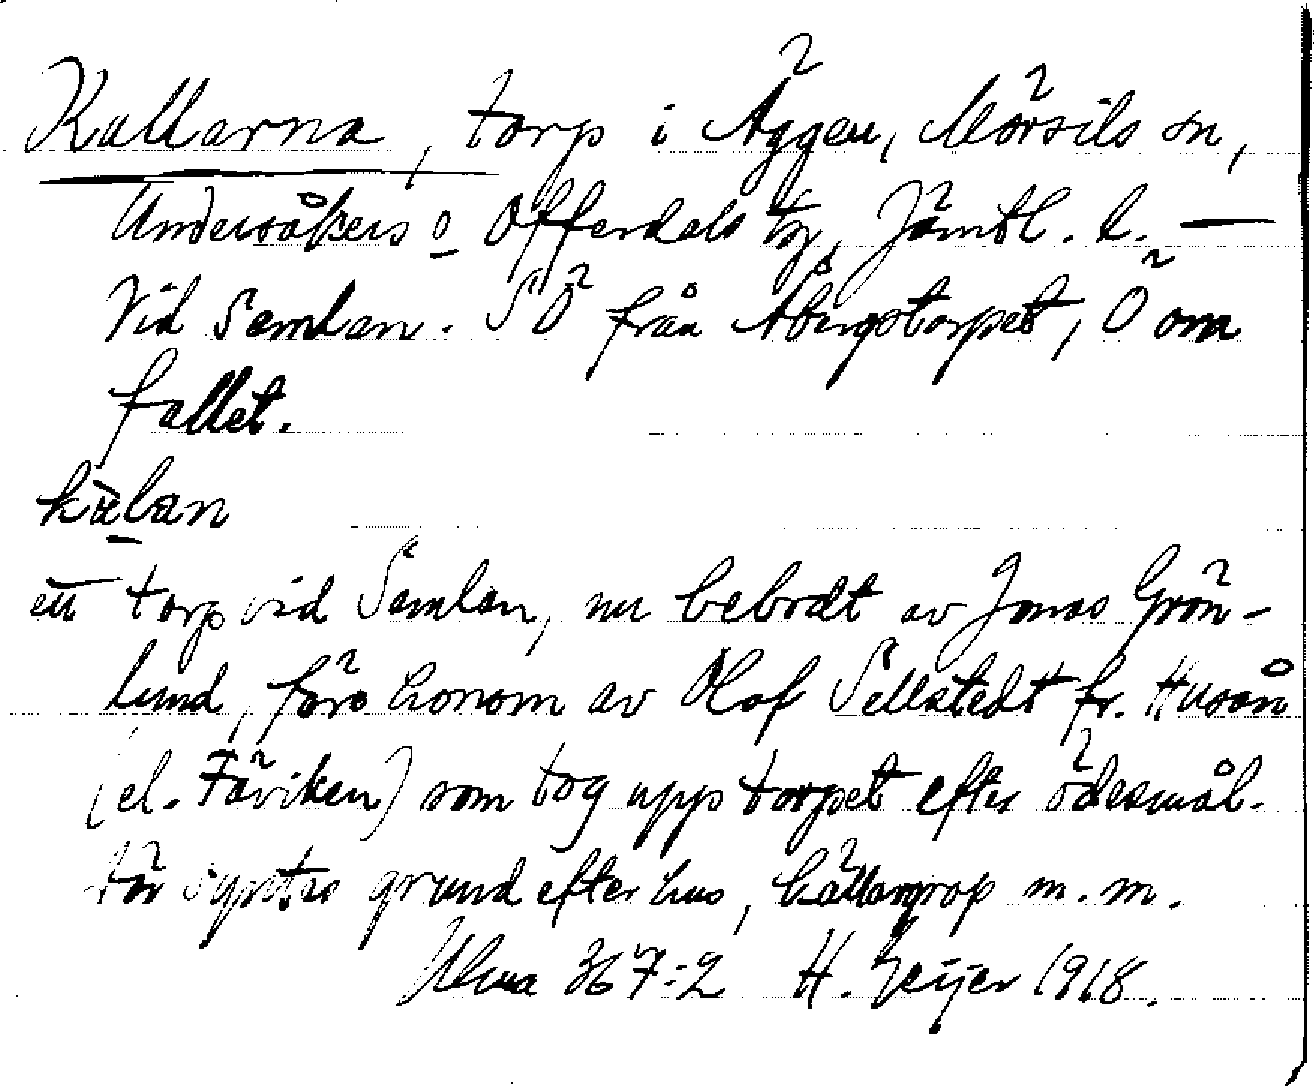 Kallarna, torp i Äggen, Mörsils sn,
Undersåkers o Offerdals tg, Jämtl. l. —
Vid Semlan. SÖ från Åbergstorpet, Ö om
fallet.
kälan
ett torp vid Semlan, nu bebott av Jonas Grön-
lund, före honom av Olof Sellstedt fr. Huså
(el. Fäviken) som tog upp torpet efter ödesmål.
där syntes grund efter hus, källargrop m.m.
Ulma 367:2 H. Geijer 1918.